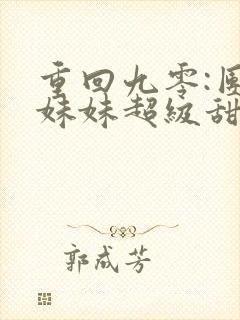 重回九零:团
妹妹超级甜
郭成芳